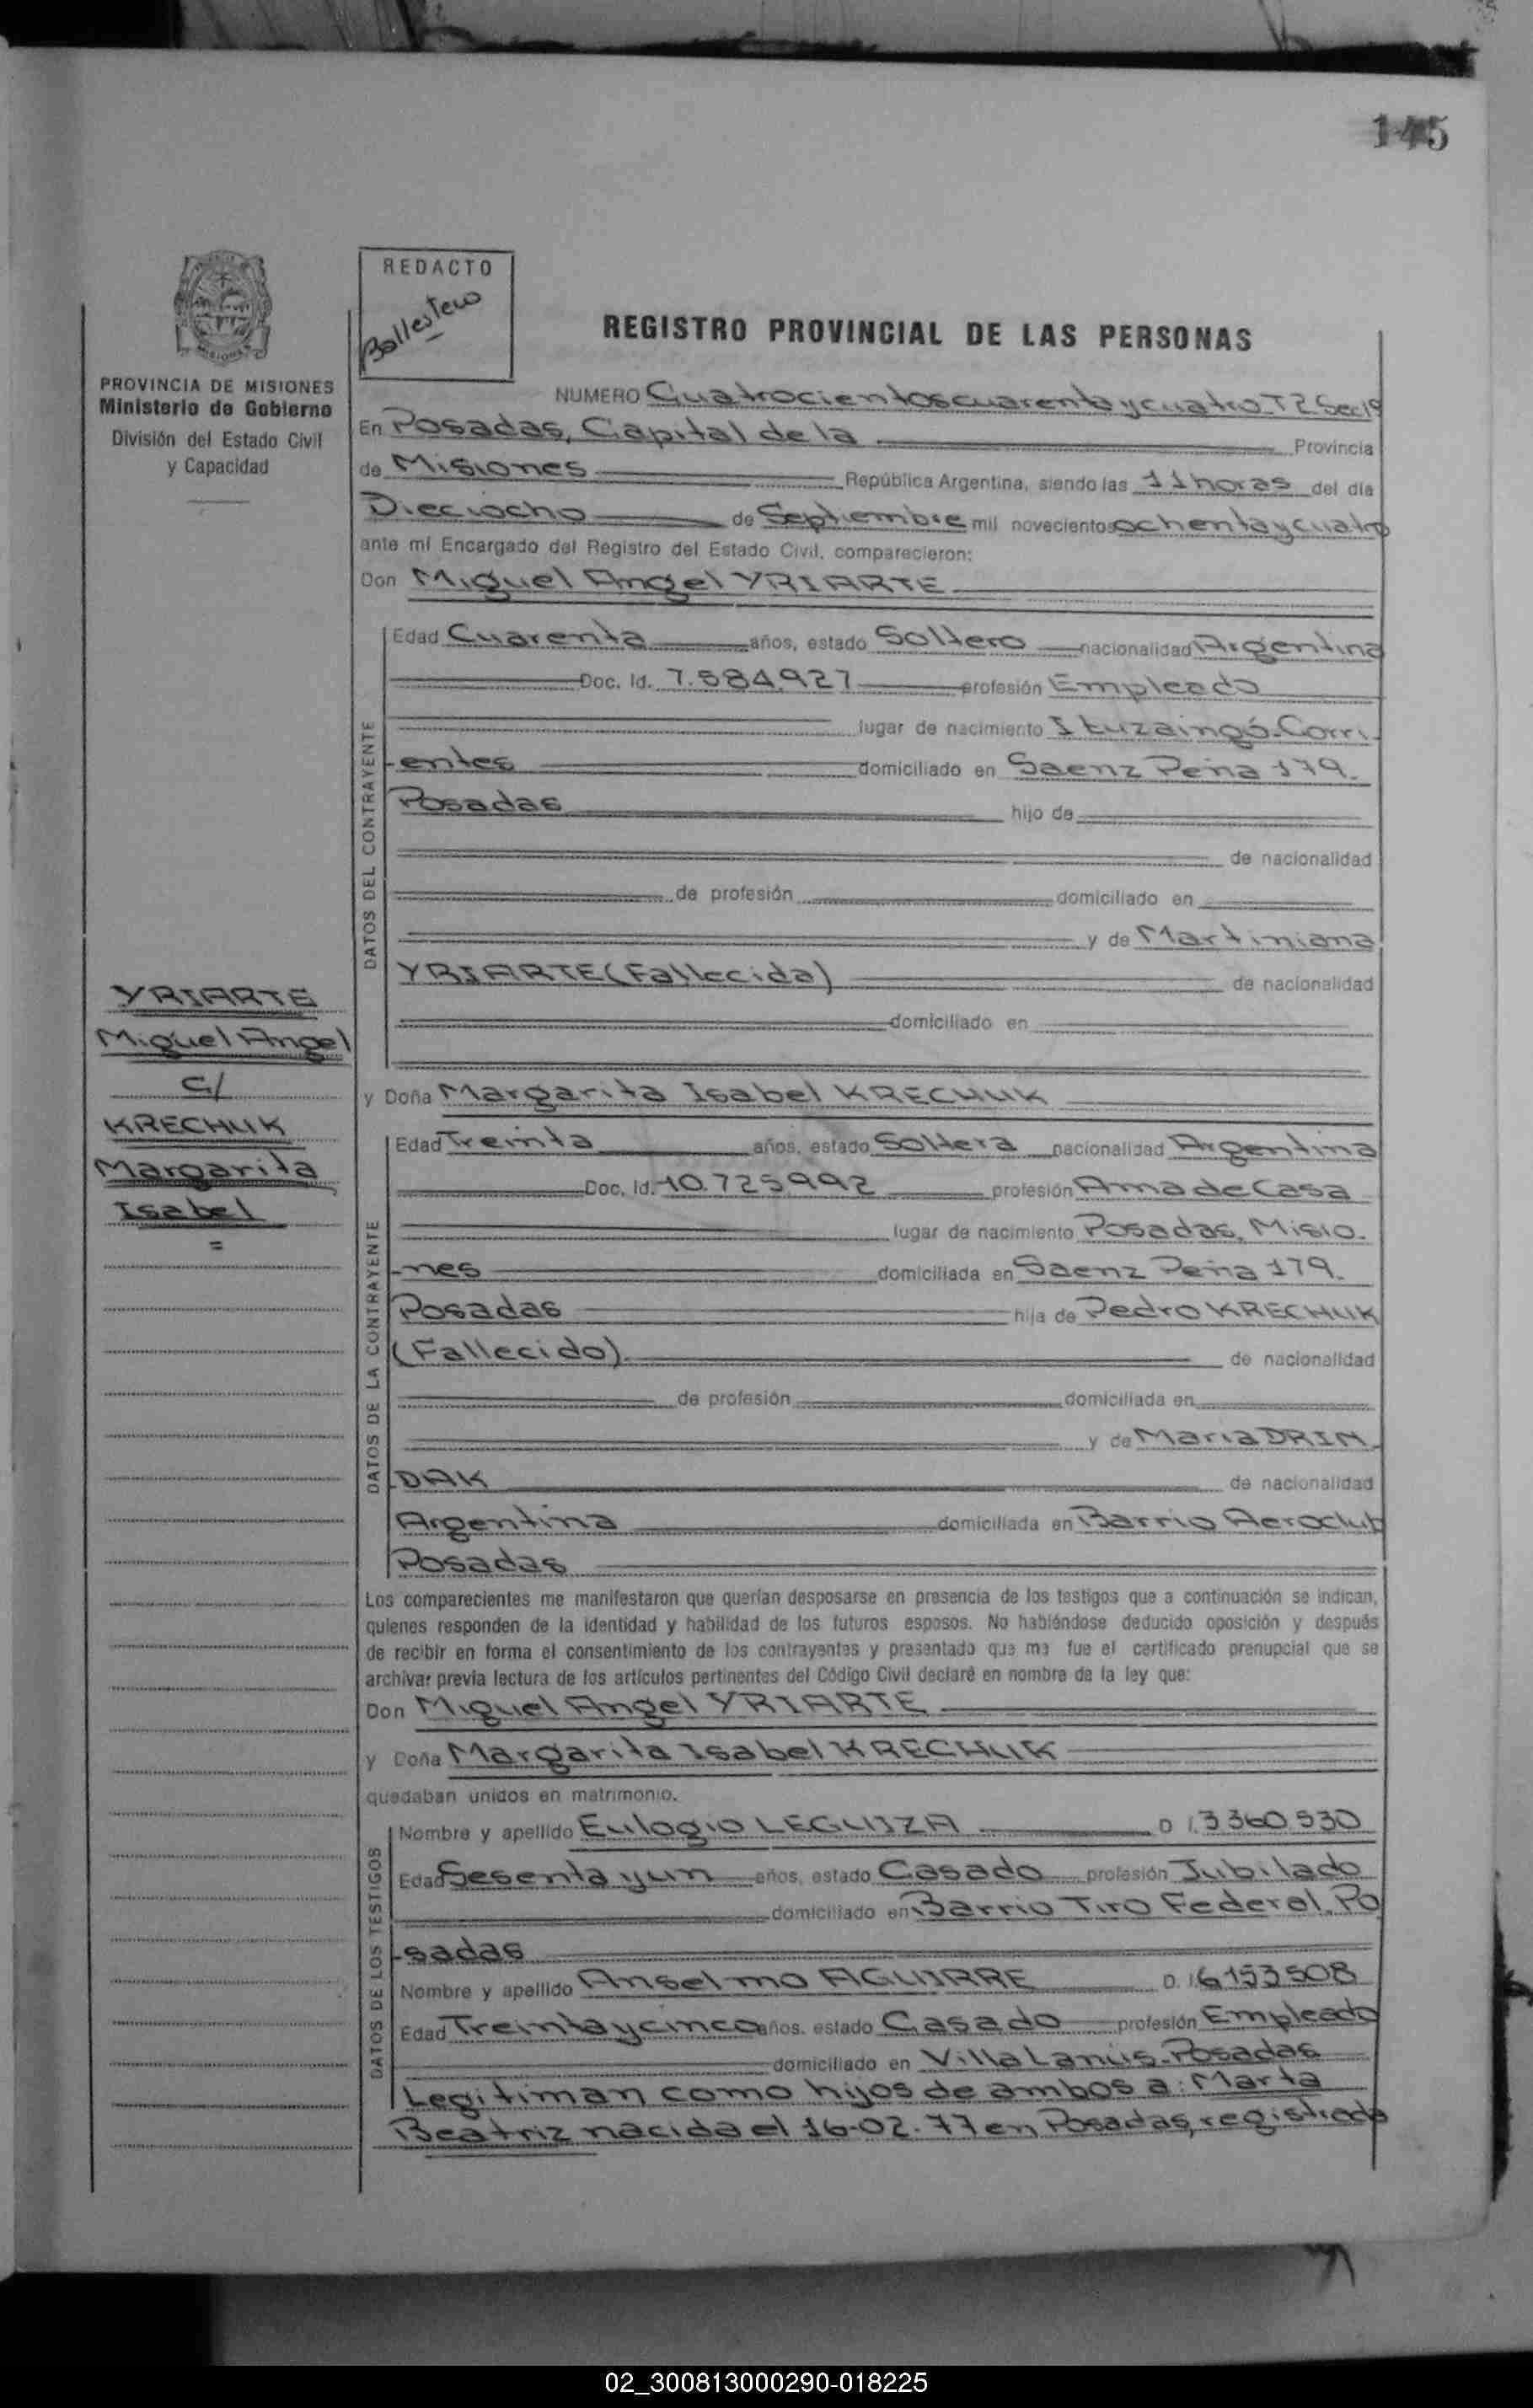 145
REDACTO
Ballestero
REGISTRO PROVINCIAL DE LAS PERSONAS
PROVINCIA DE MISIONES
Ministerio de Gobierno
División del Estado Civil
y Capacidad
NUMERO Cuatrocientos cuarenta y cuatro T2 Sec 1ª
En Posadas, Capital de la Provincia
de Misiones República Argentina, siendo las 11 horas del día
Dieciocho de Septiembre mil novecientos ochenta y cuatro
ante mí Encargado del Registro del Estado Civil, comparecieron:
Don Miguel Angel YRIARTE
DATOS DEL CONTRAYENTE
Edad Cuarenta años, estado Soltero nacionalidad Argentina
Doc. Id. 7.584.927 profesión Empleado
lugar de nacimiento Ituzaingó-Corri-
-entes domiciliado en Saenz Peña 179.
Posadas hijo de
de nacionalidad
de profesión domiciliado en
y de Martiniana
YRIARTE (Fallecida) de nacionalidad
domiciliado en
YRIARTE
Miguel Angel
C/
KRECHUK
Margarita
Isabel
=
y Doña Margarita Isabel KRECHUK
DATOS DE LA CONTRAYENTE
Edad Treinta años, estado Soltera nacionalidad Argentina
Doc. Id. 10.725.992 profesión Ama de Casa
lugar de nacimiento Posadas, Misio-
-nes domiciliada en Saenz Peña 179.
Posadas hija de Pedro KRECHUK
(Fallecido). de nacionalidad
de profesión domiciliada en
y de Maria DRIN-
-DAK de nacionalidad
Argentina domiciliada en Barrio Aeroclub
Posadas
Los comparecientes me manifestaron que querían desposarse en presencia de los testigos que a continuación se indican,
quienes responden de la identidad y habilidad de los futuros esposos. No habiéndose deducido oposición y después
de recibir en forma el consentimiento de los contrayentes y presentado que me fue el certificado prenupcial que se
archivar previa lectura de los artículos pertinentes del Código Civil declaré en nombre de la ley que:
Don Miguel Angel YRIARTE
y Doña Margarita Isabel KRECHUK
quedaban unidos en matrimonio.
DATOS DE LOS TESTIGOS
Nombre y apellido Eulogio LEGUIZA D.I. 3360.530
Edad Sesenta y un años, estado Casado profesión Jubilado
domiciliado en Barrio Tiro Federal. Po
-sadas
Nombre y apellido Anselmo AGUIRRE D.I. 6153508
Edad Treinta y cinco años, estado Casado profesión Empleado
domiciliado en Villa Lanús-Posadas
Legitiman como hijos de ambos a: Marta
Beatriz nacida el 16-02-77 en Posadas, registrada
02_300813000290-018225